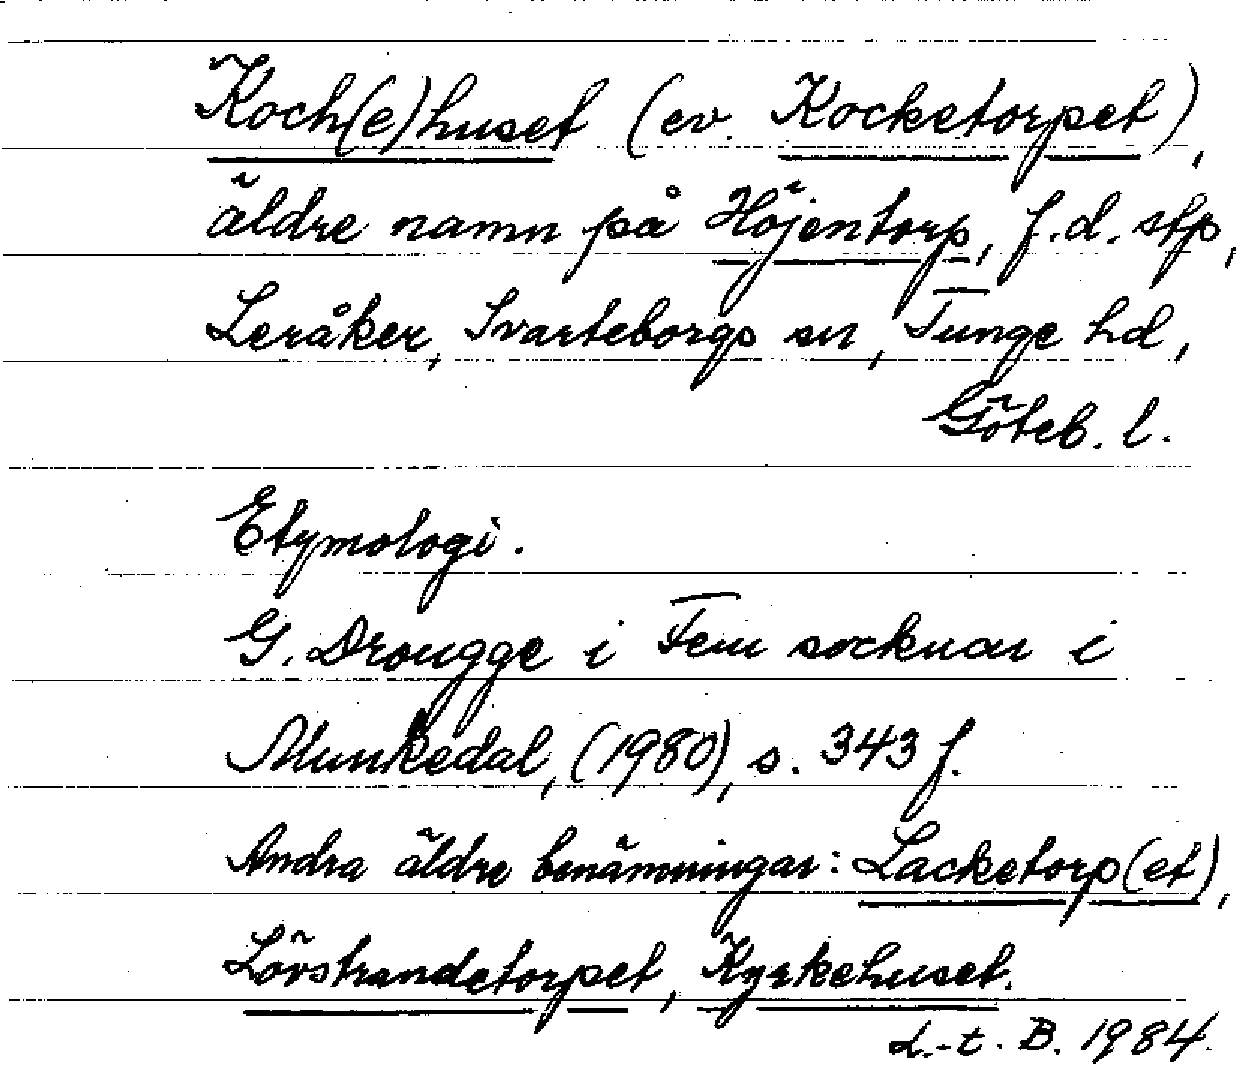 Koch(e)huset (ev. Kocketorpet),
äldre namn på Höjentorp, f.d. stp,
Leråker, Svarteborgs sn, Tunge hd,
Göteb. l.
Etymologi.
G. Drougge i Fem socknar i
Munkedal, (1980), s. 343 f.
Andra äldre benämningar: Lacketorp(et),
Lövstrandetorpet, Kyrkehuset.
L.-t. B. 1984.